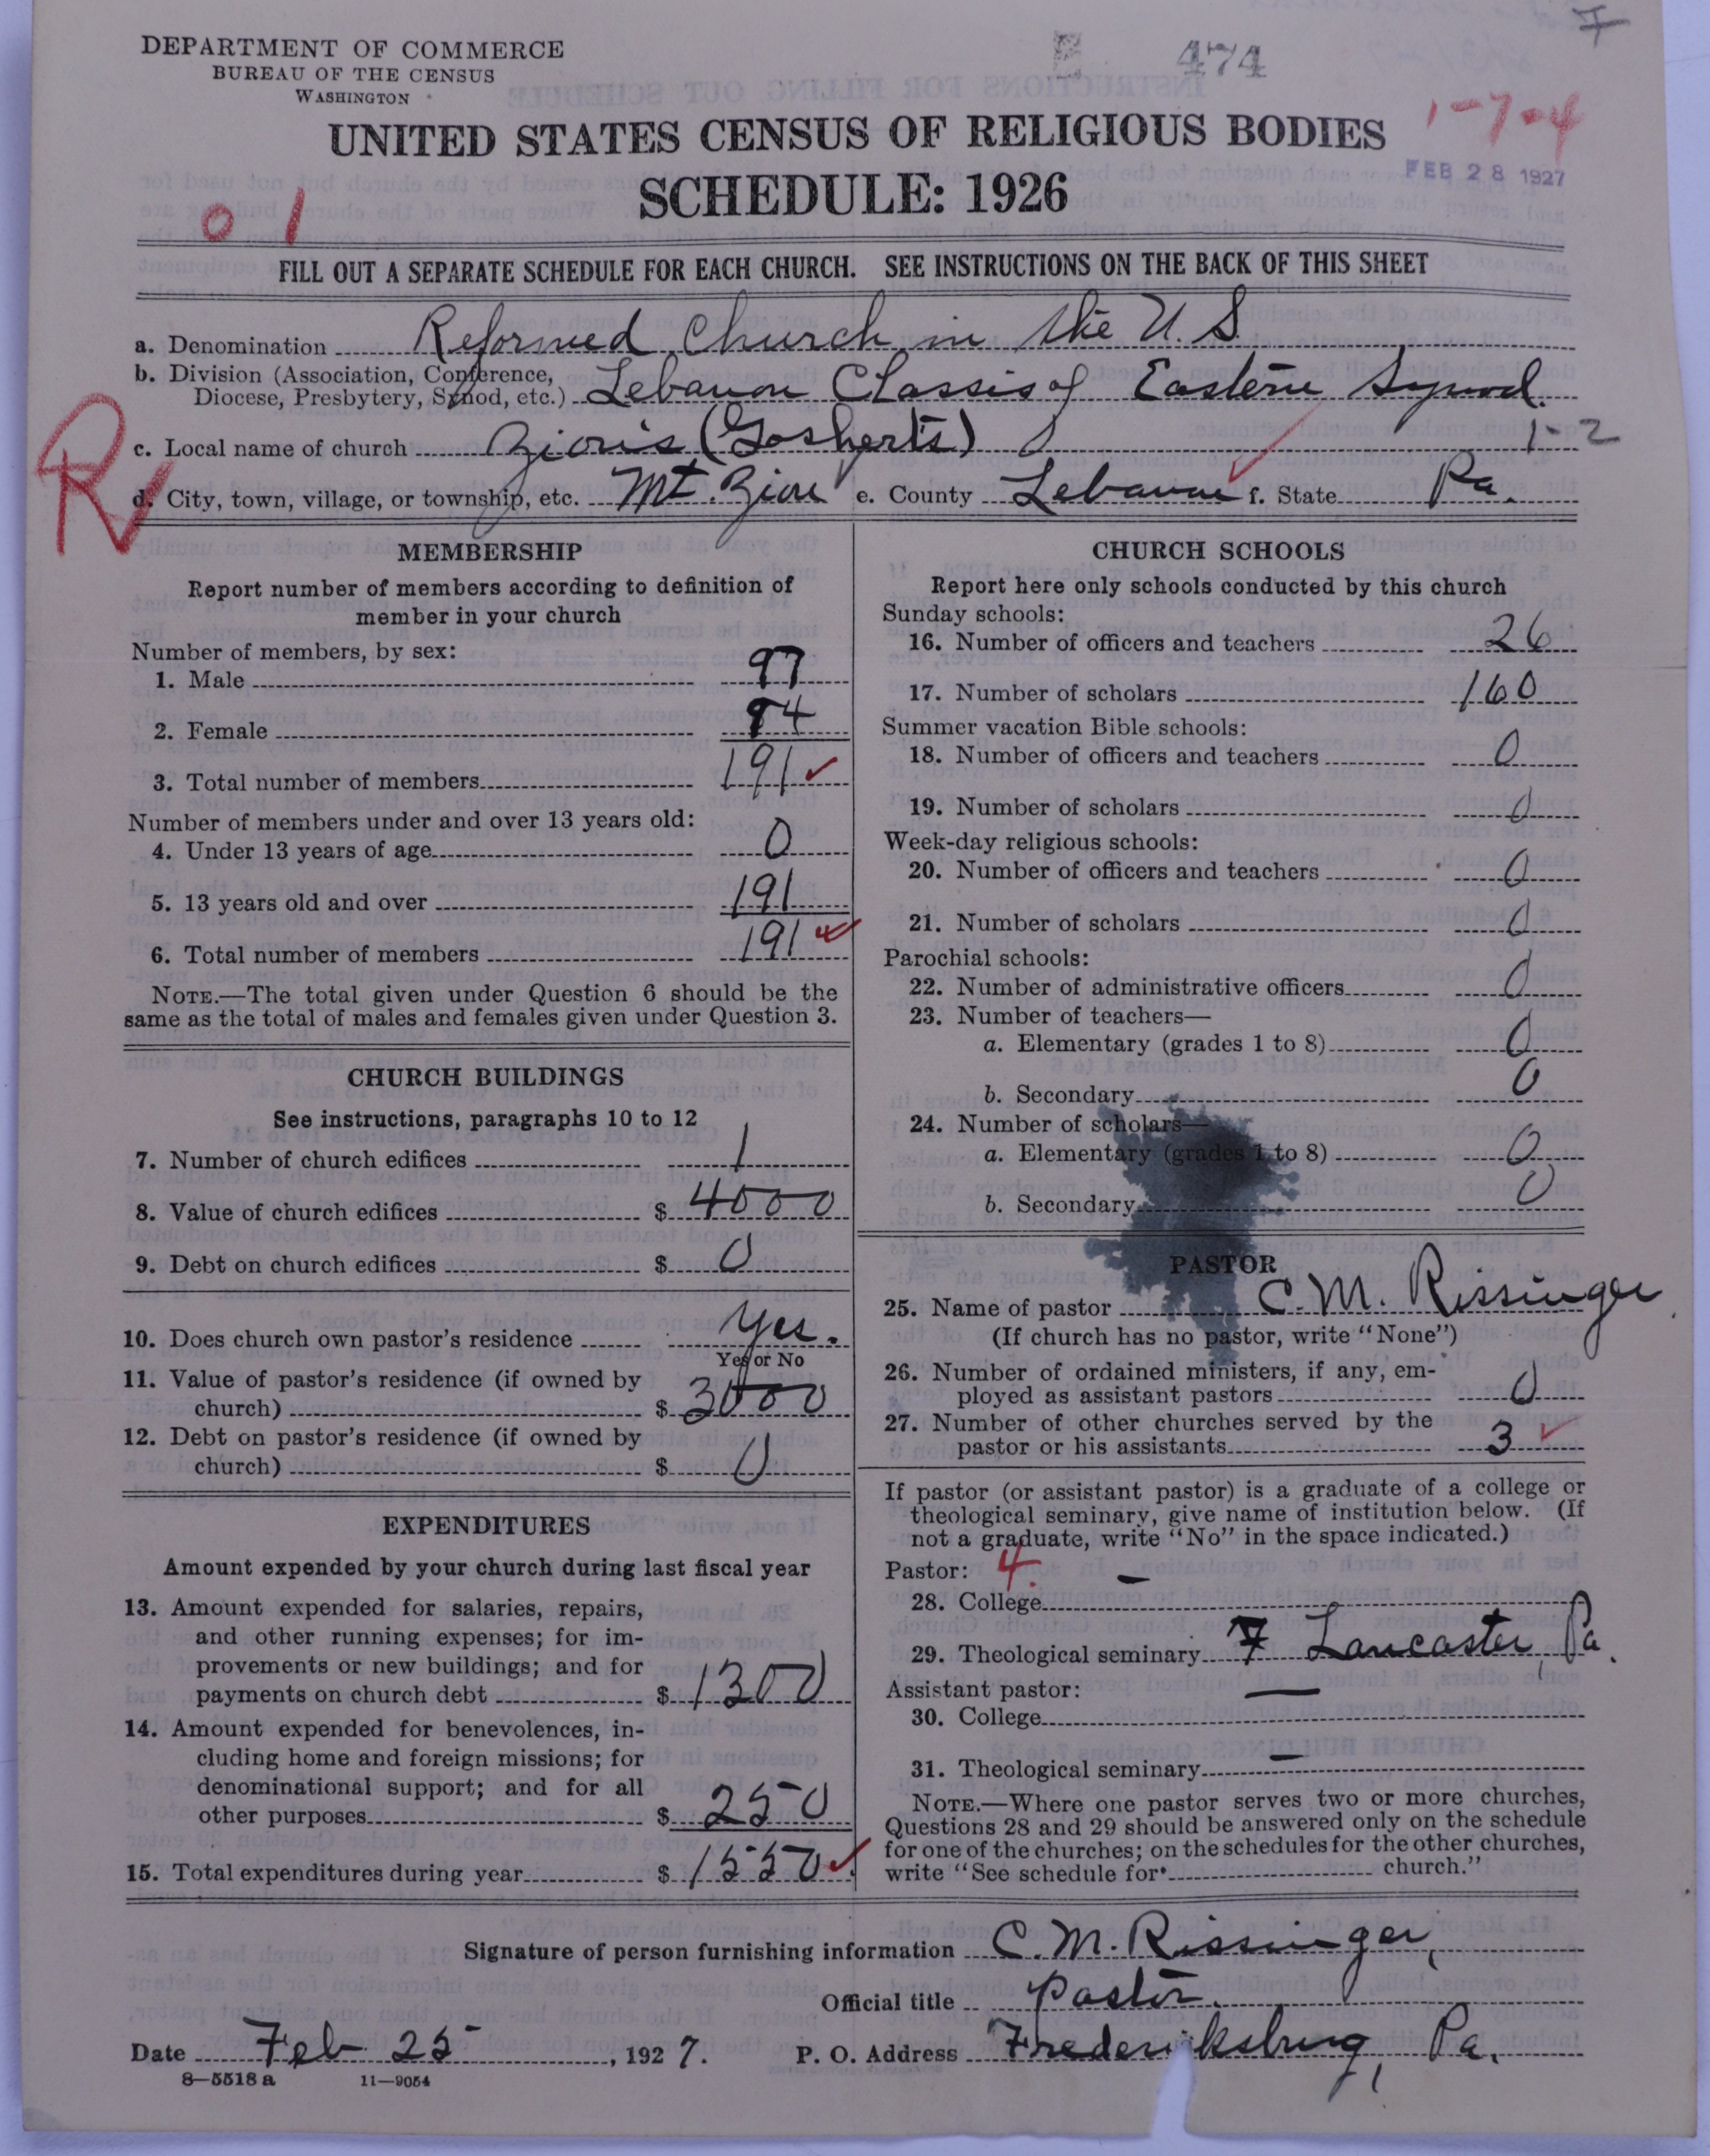 7
DEPARTMENT OF COMMERCE
BUREAU OF THE CENSUS
WASHINGTON
E 474
1-7-4
UNITED STATES CENSUS OF RELIGIOUS BODIES
FEB 28 1927
SCHEDULE: 1926
0 1
FILL OUT A SEPARATE SCHEDULE FOR EACH CHURCH. SEE INSTRUCTIONS ON THE BACK OF THIS SHEET
a. Denomination Reformed Church in the U. S.
b. Division (Association, Conference,
Diocese, Presbytery, Synod, etc.) Lebanon Classis of Eastern Synod.
c. Local name of church Zion's (Goshert's) 1-2
R
d. City, town, village, or township, etc. Mt. Zion e. County Lebanon f. State Pa.
MEMBERSHIP
Report number of members according to definition of
member in your church
Number of members, by sex:
1. Male 97
2. Female 94
3. Total number of members 191
Number of members under and over 13 years old:
4. Under 13 years of age 0
5. 13 years old and over 191
6. Total number of members 191
NOTE.—The total given under Question 6 should be the
same as the total of males and females given under Question 3.
CHURCH BUILDINGS
See instructions, paragraphs 10 to 12
7. Number of church edifices 1
8. Value of church edifices $ 4000
9. Debt on church edifices $ 0
10. Does church own pastor's residence Yes.
Yes or No
11. Value of pastor's residence (if owned by
church) $ 3000
12. Debt on pastor's residence (if owned by
church) $ 0
EXPENDITURES
Amount expended by your church during last fiscal year
13. Amount expended for salaries, repairs,
and other running expenses; for im-
provements or new buildings; and for
payments on church debt $ 1300
14. Amount expended for benevolences, in-
cluding home and foreign missions; for
denominational support; and for all
other purposes $ 250
15. Total expenditures during year $ 1550
CHURCH SCHOOLS
Report here only schools conducted by this church
Sunday schools:
16. Number of officers and teachers 26
17. Number of scholars 160
Summer vacation Bible schools:
18. Number of officers and teachers 0
19. Number of scholars 0
Week-day religious schools:
20. Number of officers and teachers 0
21. Number of scholars 0
Parochial schools:
22. Number of administrative officers 0
23. Number of teachers—
a. Elementary (grades 1 to 8) 0
b. Secondary 0
24. Number of scholars—
a. Elementary (grades 1 to 8) 0
b. Secondary 0
PASTOR
25. Name of pastor C. M. Rissinger
(If church has no pastor, write "None")
26. Number of ordained ministers, if any, em-
ployed as assistant pastors 0
27. Number of other churches served by the
pastor or his assistants 3
If pastor (or assistant pastor) is a graduate of a college or
theological seminary, give name of institution below. (If
not a graduate, write "No" in the space indicated.)
Pastor: 4.
28. College —
29. Theological seminary 7 Lancaster, Pa.
Assistant pastor:
30. College —
31. Theological seminary —
NOTE.—Where one pastor serves two or more churches,
Questions 28 and 29 should be answered only on the schedule
for one of the churches; on the schedules for the other churches,
write "See schedule for church."
Signature of person furnishing information C. M. Rissinger,
Official title Pastor.
Date Feb 25, 1927. P. O. Address Fredericksburg, Pa.
8—5518 a 11—9054